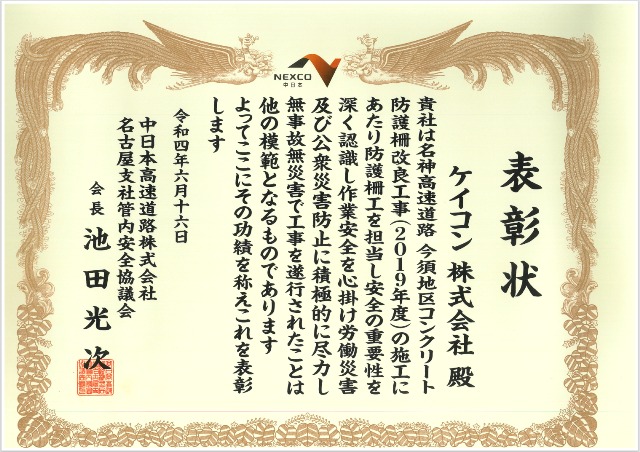 NEXCO
中日本
表彰状
ケイコン株式会社 殿
貴社は名神高速道路 今須地区コンクリート
防護柵改良工事(2019年度)の施工に
あたり防護柵工を担当し安全の重要性を
深く認識し作業安全を心掛け労働災害
及び公衆災害防止に積極的に尽力し
無事故無災害で工事を遂行されたことは
他の模範となるものであります
よってここにその功績を称えこれを表彰
します
令和四年六月十六日
中日本高速道路株式会社
名古屋支社管内安全協議会
会長 池田光次